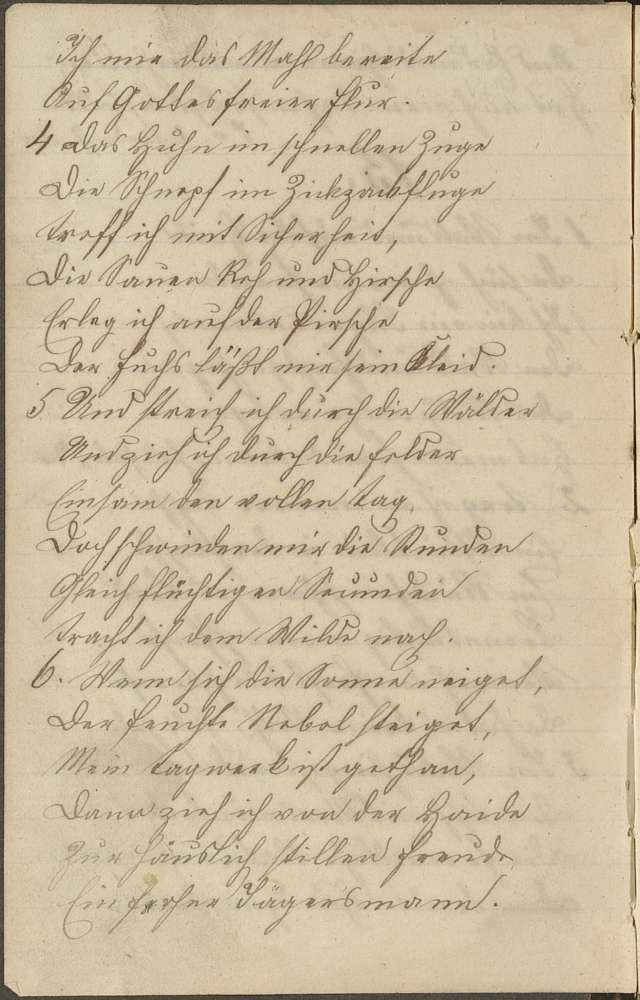 Ich mir das Mahl bereite
Auf Gottes freier Flur.
4 Das Huhn im schnellen Zuge
Die Schnepf im Zickzackfluge
Treff ich mit Sicherheit,
Die Sauen Reh und Hirsche
Erleg ich auf der Pirsche
Der Fuchs läßt mir sein Kleid.
5 Und streich ich durch die Wälder
Und zieh ich durch die Felder
Einsam den vollen Tag,
Doch schwinden mir die Stunden
Gleich flüchtigen Secunden
Tracht ich dem Wilde nach.
6. Wenn sich die Sonne neiget,
Der feuchte Nebel steiget,
Mein Tagwerk ist gethan,
Dann zieh ich von der Haide
Zur häuslich stillen Freude
Ein froher Jägersmann.